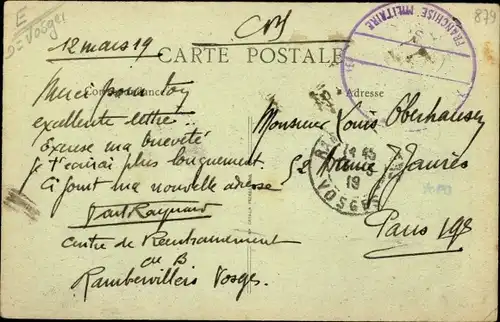 E
D= Vosges
CPS
879
12 mars 19
CARTE POSTALE
FRANCHISE MILITAIRE
Correspondance
Adresse
Merci pour ton
excellente lettre.
Excuse ma brièveté
Je t'écrirai plus longuement.
Ci joint ma nouvelle adresse
Raynard
Centre de Rembarrement
B
Rambervillers Vosges.
Monsieur Louis Oberhauser
52 Avenue Jaurès
Paris 19e
14 45
19
VOSGES